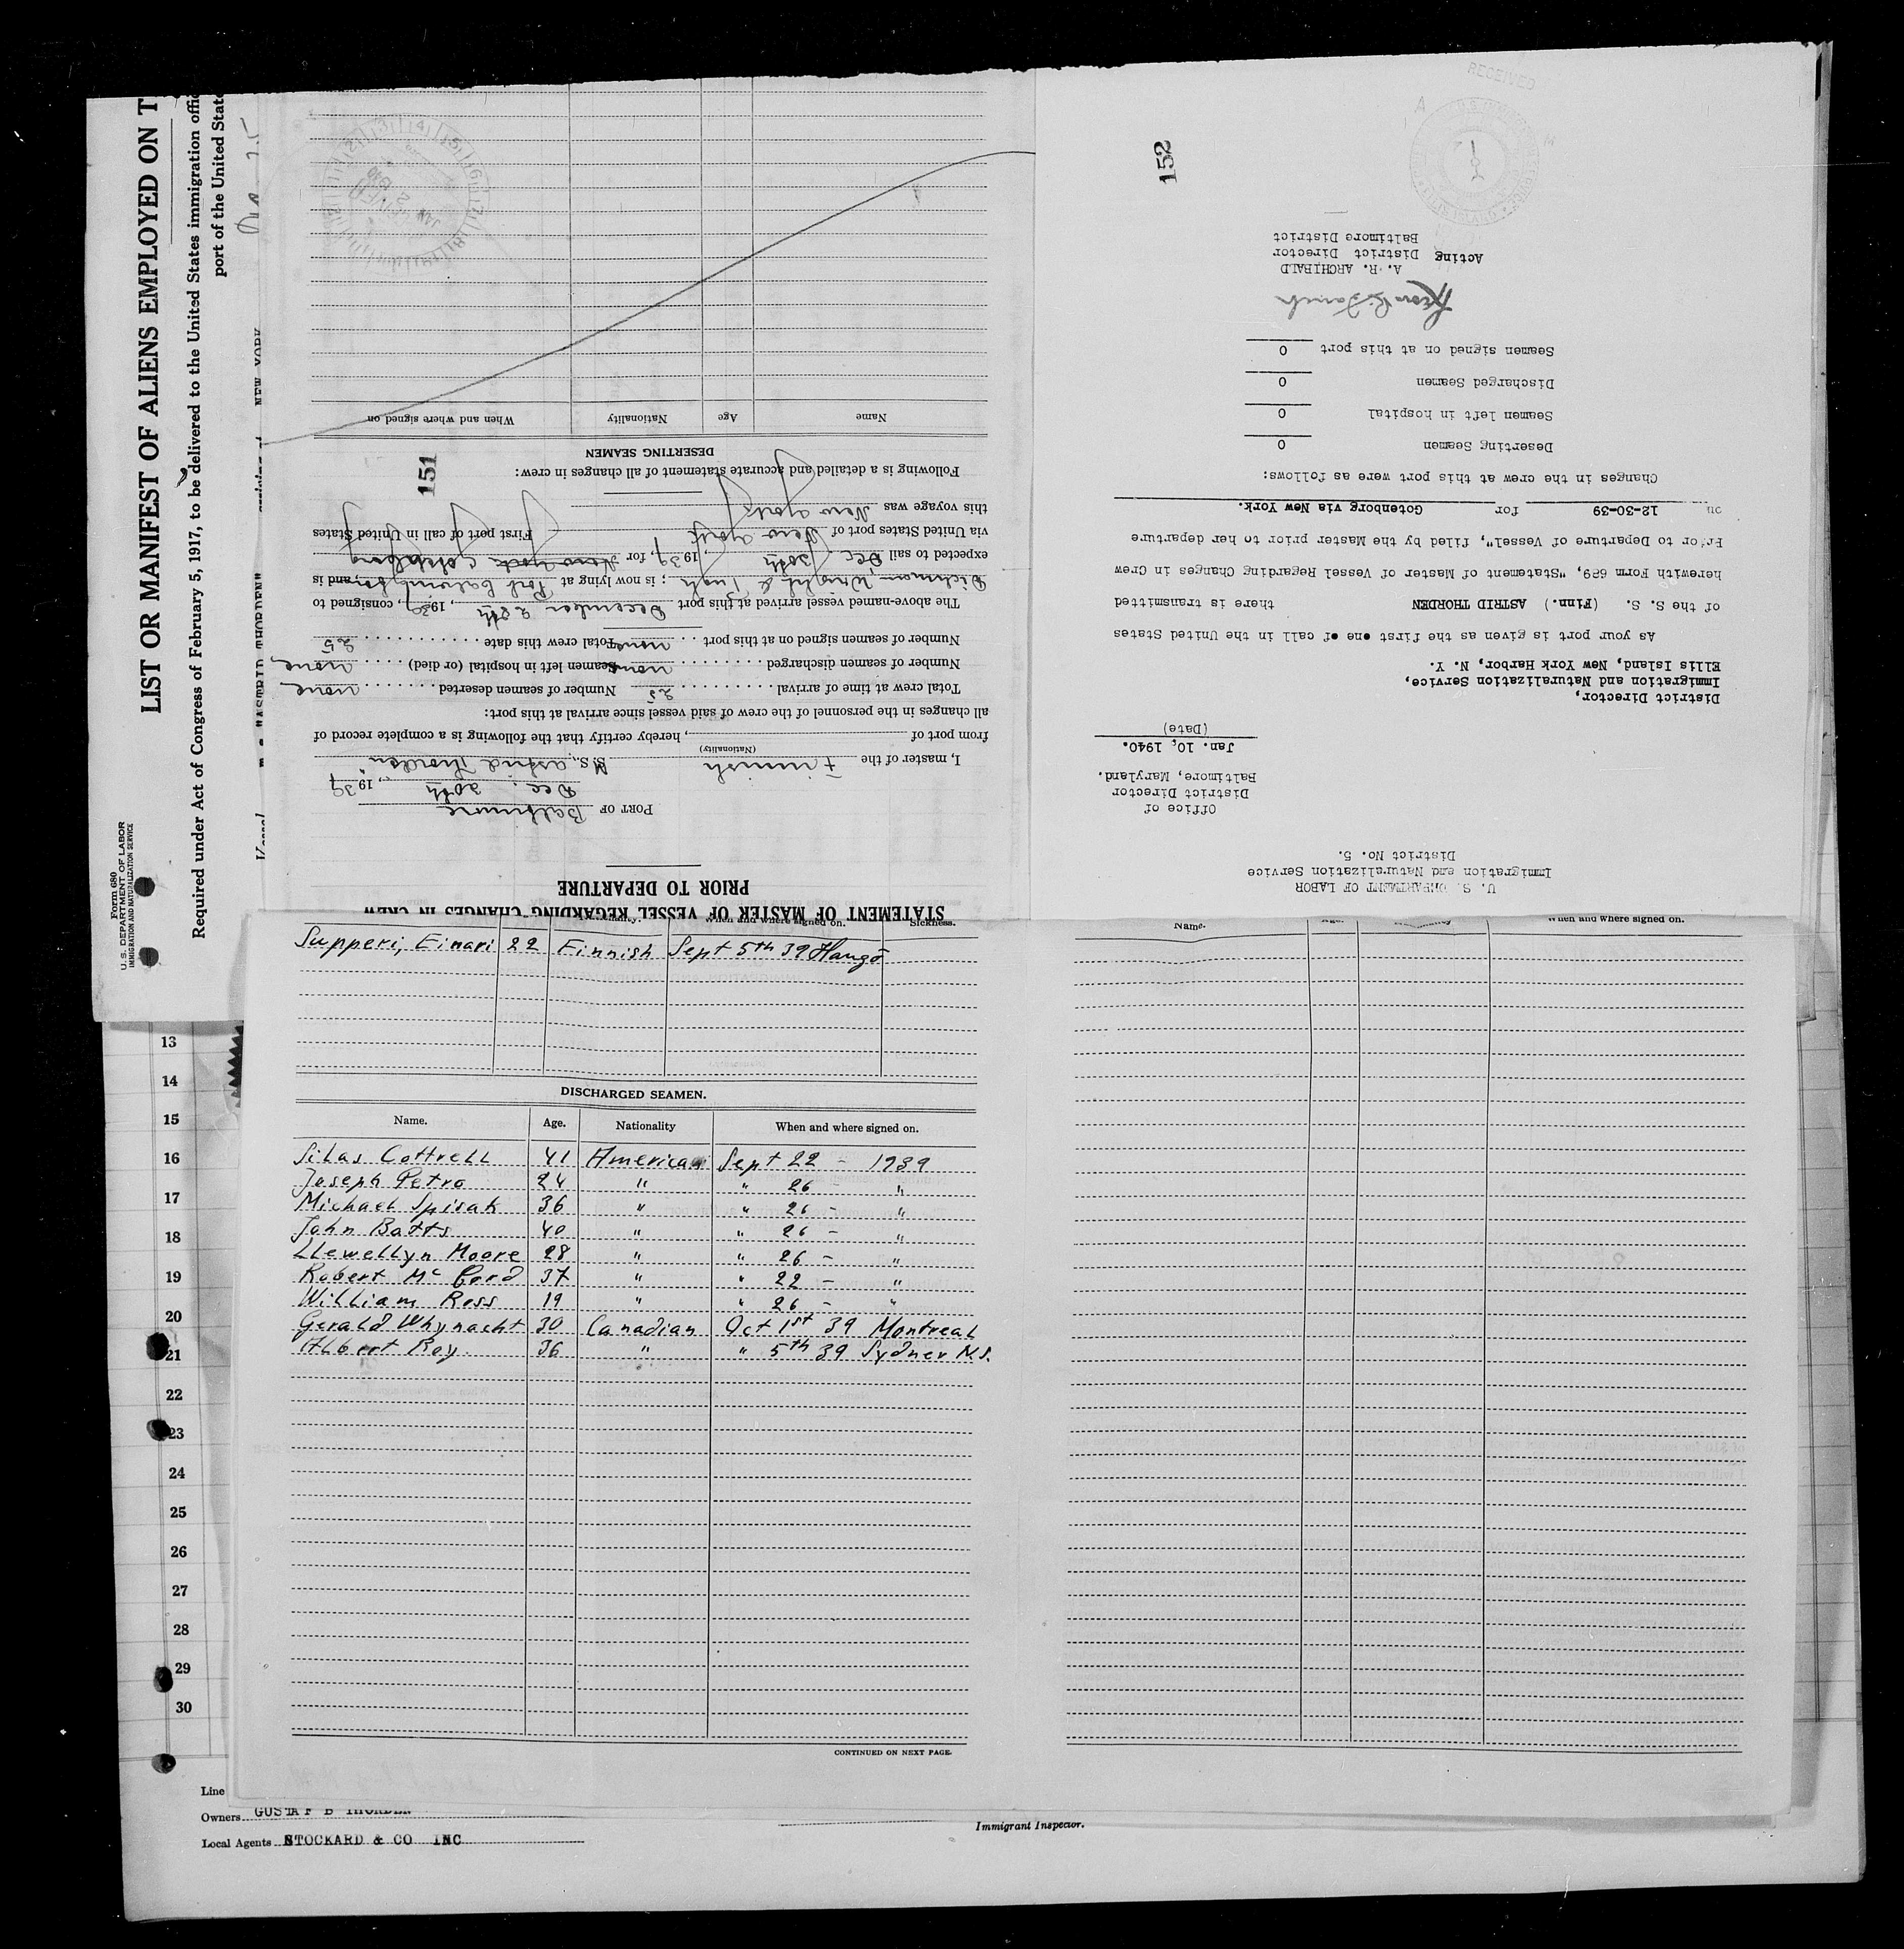 LIST OR MANIFEST OF ALIENS EMPLOYED ON T
Required under Act of Congress of February 5, 1917, to be delivered to the United States immigration offic
port of the United State
Form 680
U. S. DEPARTMENT OF LABOR
IMMIGRATION AND NATURALIZATION SERVICE
Vessel "ASTRID THORDEN" arriving at NEW YORK
STATEMENT OF MASTER OF VESSEL REGARDING CHANGES IN CREW
PRIOR TO DEPARTURE
PORT OF Baltimore
Dec. 30th, 1939
I, master of the Finnish S.S., Astrid Thorden
(Nationality)
from port of , hereby certify that the following is a complete record of
all changes in the personnel of the crew of said vessel since arrival at this port:
Total crew at time of arrival 25 Number of seamen deserted none
Number of seamen discharged none Seamen left in hospital (or died) none
Number of seamen signed on at this port none Total crew this date 25
The above-named vessel arrived at this port December 28th, 1939, consigned to
Dichmann, Wright & Pugh; is now lying at Port Covington, and is
expected to sail Dec 30th, 1939, for New York Gotebborg
via United States port of New York First port of call in United States
this voyage was New York
Following is a detailed and accurate statement of all changes in crew:
151
DESERTING SEAMEN
Name Age Nationality When and where signed on
RECEIVED
JAN 2 1940
U. S. DEPARTMENT OF LABOR
Immigration and Naturalization Service
District No. 5.
Office of
District Director
Baltimore, Maryland.
Jan. 10, 1940.
(Date)
District Director,
Immigration and Naturalization Service,
Ellis Island, New York Harbor, N. Y.
As your port is given as the first one of call in the United States
of the S. S. (Finn.) ASTRID THORDEN there is transmitted
herewith Form 689, "Statement of Master of Vessel Regarding Changes in Crew
Prior to Departure of Vessel", filed by the Master prior to her departure
on 12-30-39 for Gotenborg via New York.
Changes in the crew at this port were as follows:
Deserting Seamen 0
Seamen left in hospital 0
Discharged Seamen 0
Seamen signed on at this port 0
A. R. ARCHIBALD
Acting District Director
Baltimore District
152
RECEIVED
When and where signed on. Sickness.
Supperi, Einari 22 Finnish Sept 5th 39 Hangö
DISCHARGED SEAMEN.
Name. Age. Nationality When and where signed on.
Silas Cottrell 41 American Sept 22 - 1939
Joseph Petro 24 " " 26 - "
Michael Spisak 36 " " 26 - "
John Batts 40 " " 26 - "
Llewellyn Moore 28 " " 26 - "
Robert Mc Cord 37 " " 22 - "
William Ross 19 " " 26 - "
Gerald Whynacht 30 Canadian Oct 1st 39 Montreal
Albert Roy 36 " " 5th 39 Sydney N.S.
CONTINUED ON NEXT PAGE.
Name. When and where signed on.
13
14
15
16
17
18
19
20
21
22
23
24
25
26
27
28
29
30
Line
Owners GUSTAF B THORDEN
Local Agents STOCKARD & CO INC
Immigrant Inspector.